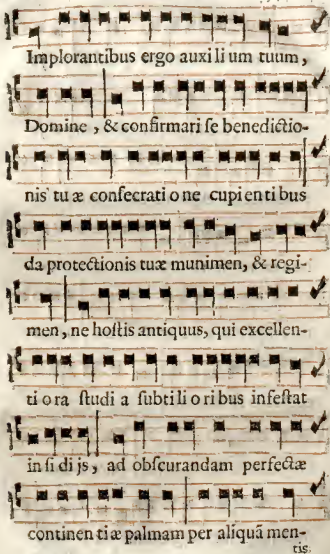 Implorantibus ergo auxi li um tuum,
Domine, & confirmari ſe benedictio-
nis tu æ conſecrati o ne cupi en ti bus
da protectionis tuæ munimen, & regi-
men, ne hoſtis antiquus, qui excellen-
ti o ra ſtudi a ſubti li o ri bus infeſtat
in ſi di js, ad obſcurandam perfectæ
continen ti æ palmam per aliquã men-
tis